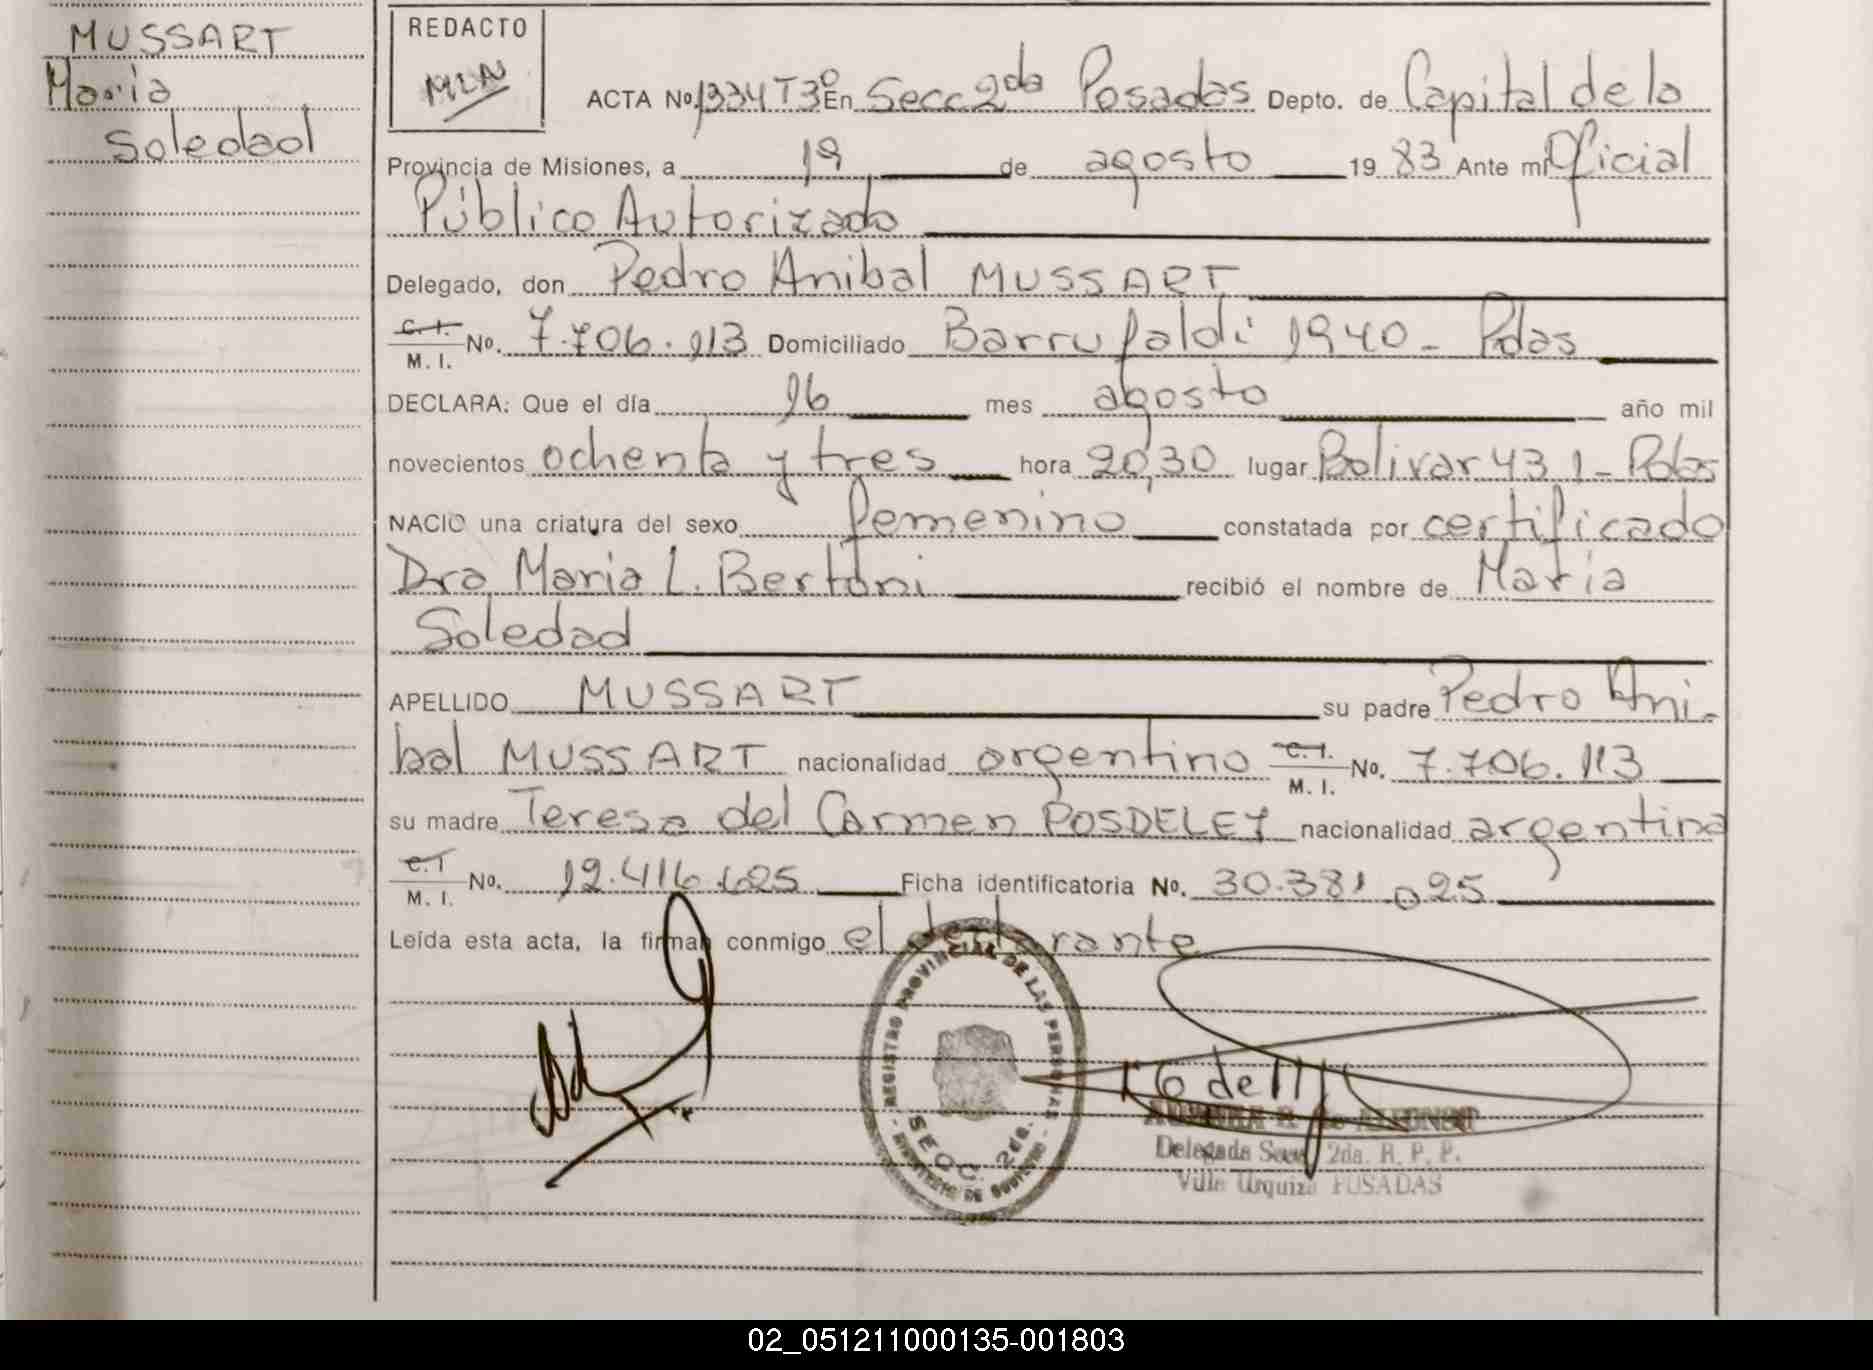 MUSSART
Maria
Soledad
REDACTO
MLN
ACTA Nº 1334 T3º En Secc 2da Posadas Depto. de Capital de la
Provincia de Misiones, a 19 de agosto 1983 Ante mi Oficial
Público Autorizado
Delegado, don Pedro Anibal MUSSART
C. I.
M. I. No. 7.706.113 Domiciliado Barrufaldi 1940 - Pdas
DECLARA: Que el día 16 mes agosto año mil
novecientos ochenta y tres hora 20,30 lugar Bolivar 431 - Pdas
NACIO una criatura del sexo femenino constatada por certificado
Dra Maria L. Bertoni recibió el nombre de María
Soledad
APELLIDO MUSSART su padre Pedro Ani-
bal MUSSART nacionalidad argentino C.I.
M. I. No. 7.706.113
su madre Teresa del Carmen POSDELEY nacionalidad argentina
C.I
M. I. No. 12.416.625 Ficha identificatoria No. 30.381.025
Leída esta acta, la firman conmigo el declarante
REGISTRO PROVINCIAL DE LAS PERSONAS
SECC. 2da.
MINISTERIO DE GOBIERNO
de ALFONSO
Delegada Secc. 2da. R. P. P.
Villa Urquiza POSADAS
02_051211000135-001803